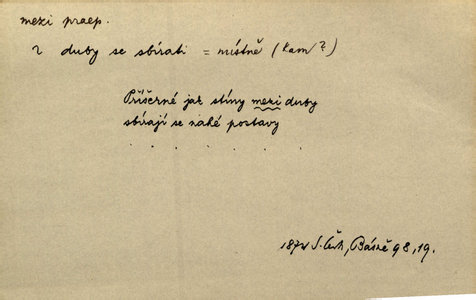 mezi praep.
~ duby se sbírati = místně (kam?)
Příšerné jak stíny mezi duby
sbírají se nahé postavy
. . . . . .
1874 S. Čech, Básně 98, 19.